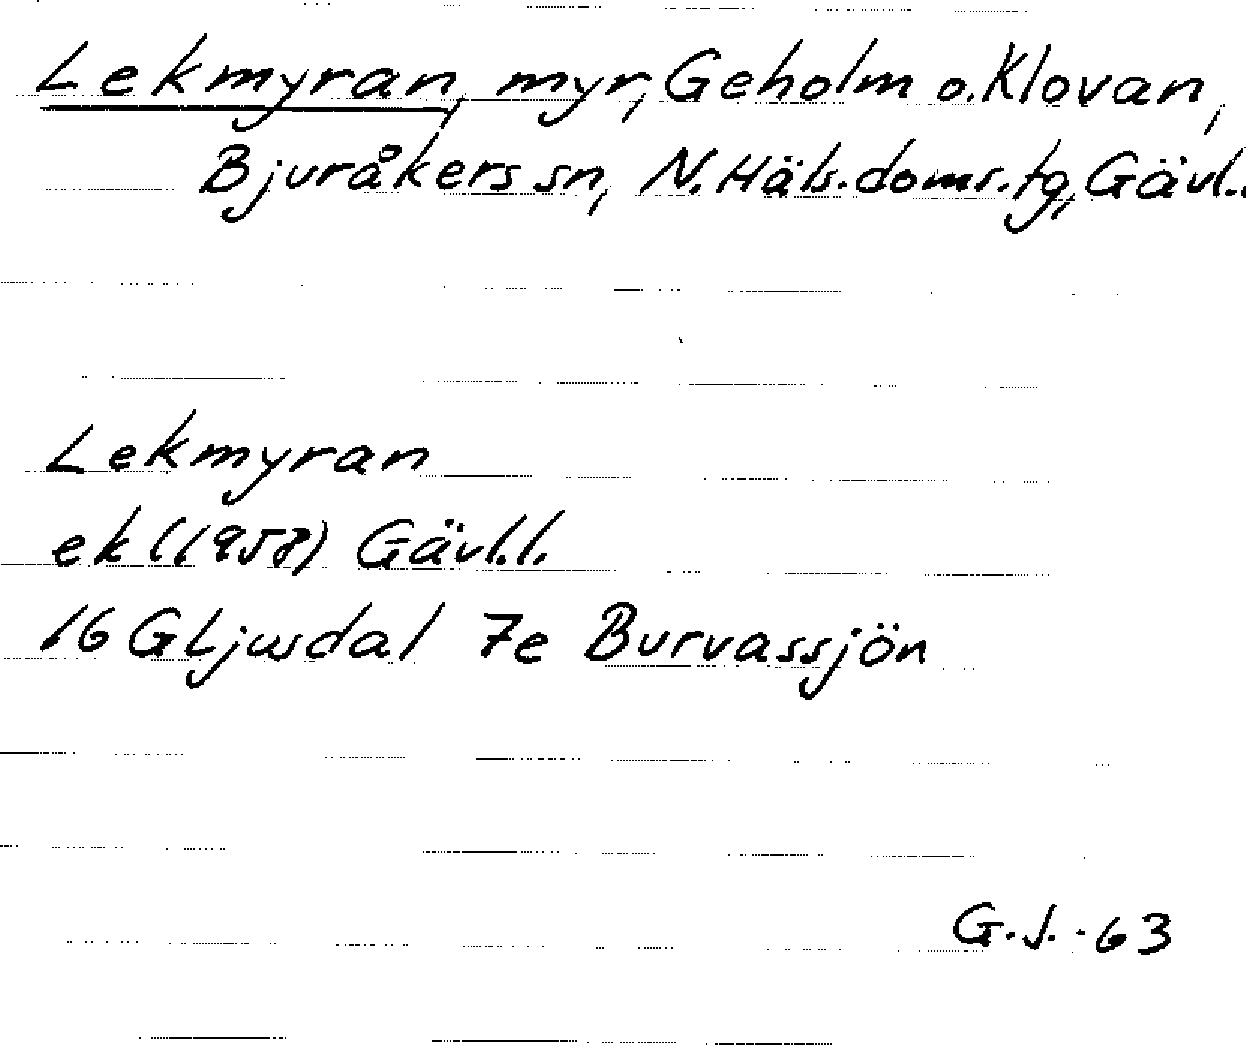 Lekmyran, myr, Geholm o. Klovan,
Bjuråkers sn, N. Häls. doms. tg, Gävl..
Lekmyran
ek (1958) Gävl.l.
16 G Ljusdal 7e Burvassjön
G.J.-63